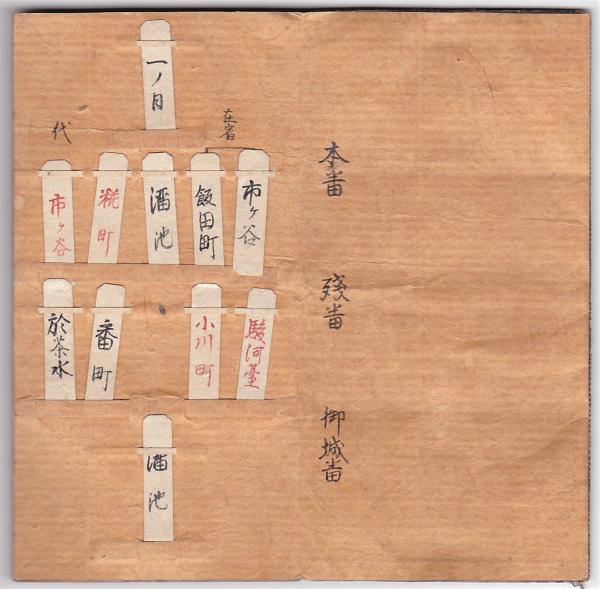 本番
残番
御城番
一ノ日
在宿
代
市ヶ谷
飯田町
溜池
糀町
市ヶ谷
駿河臺
小川町
番町
於茶水
溜池